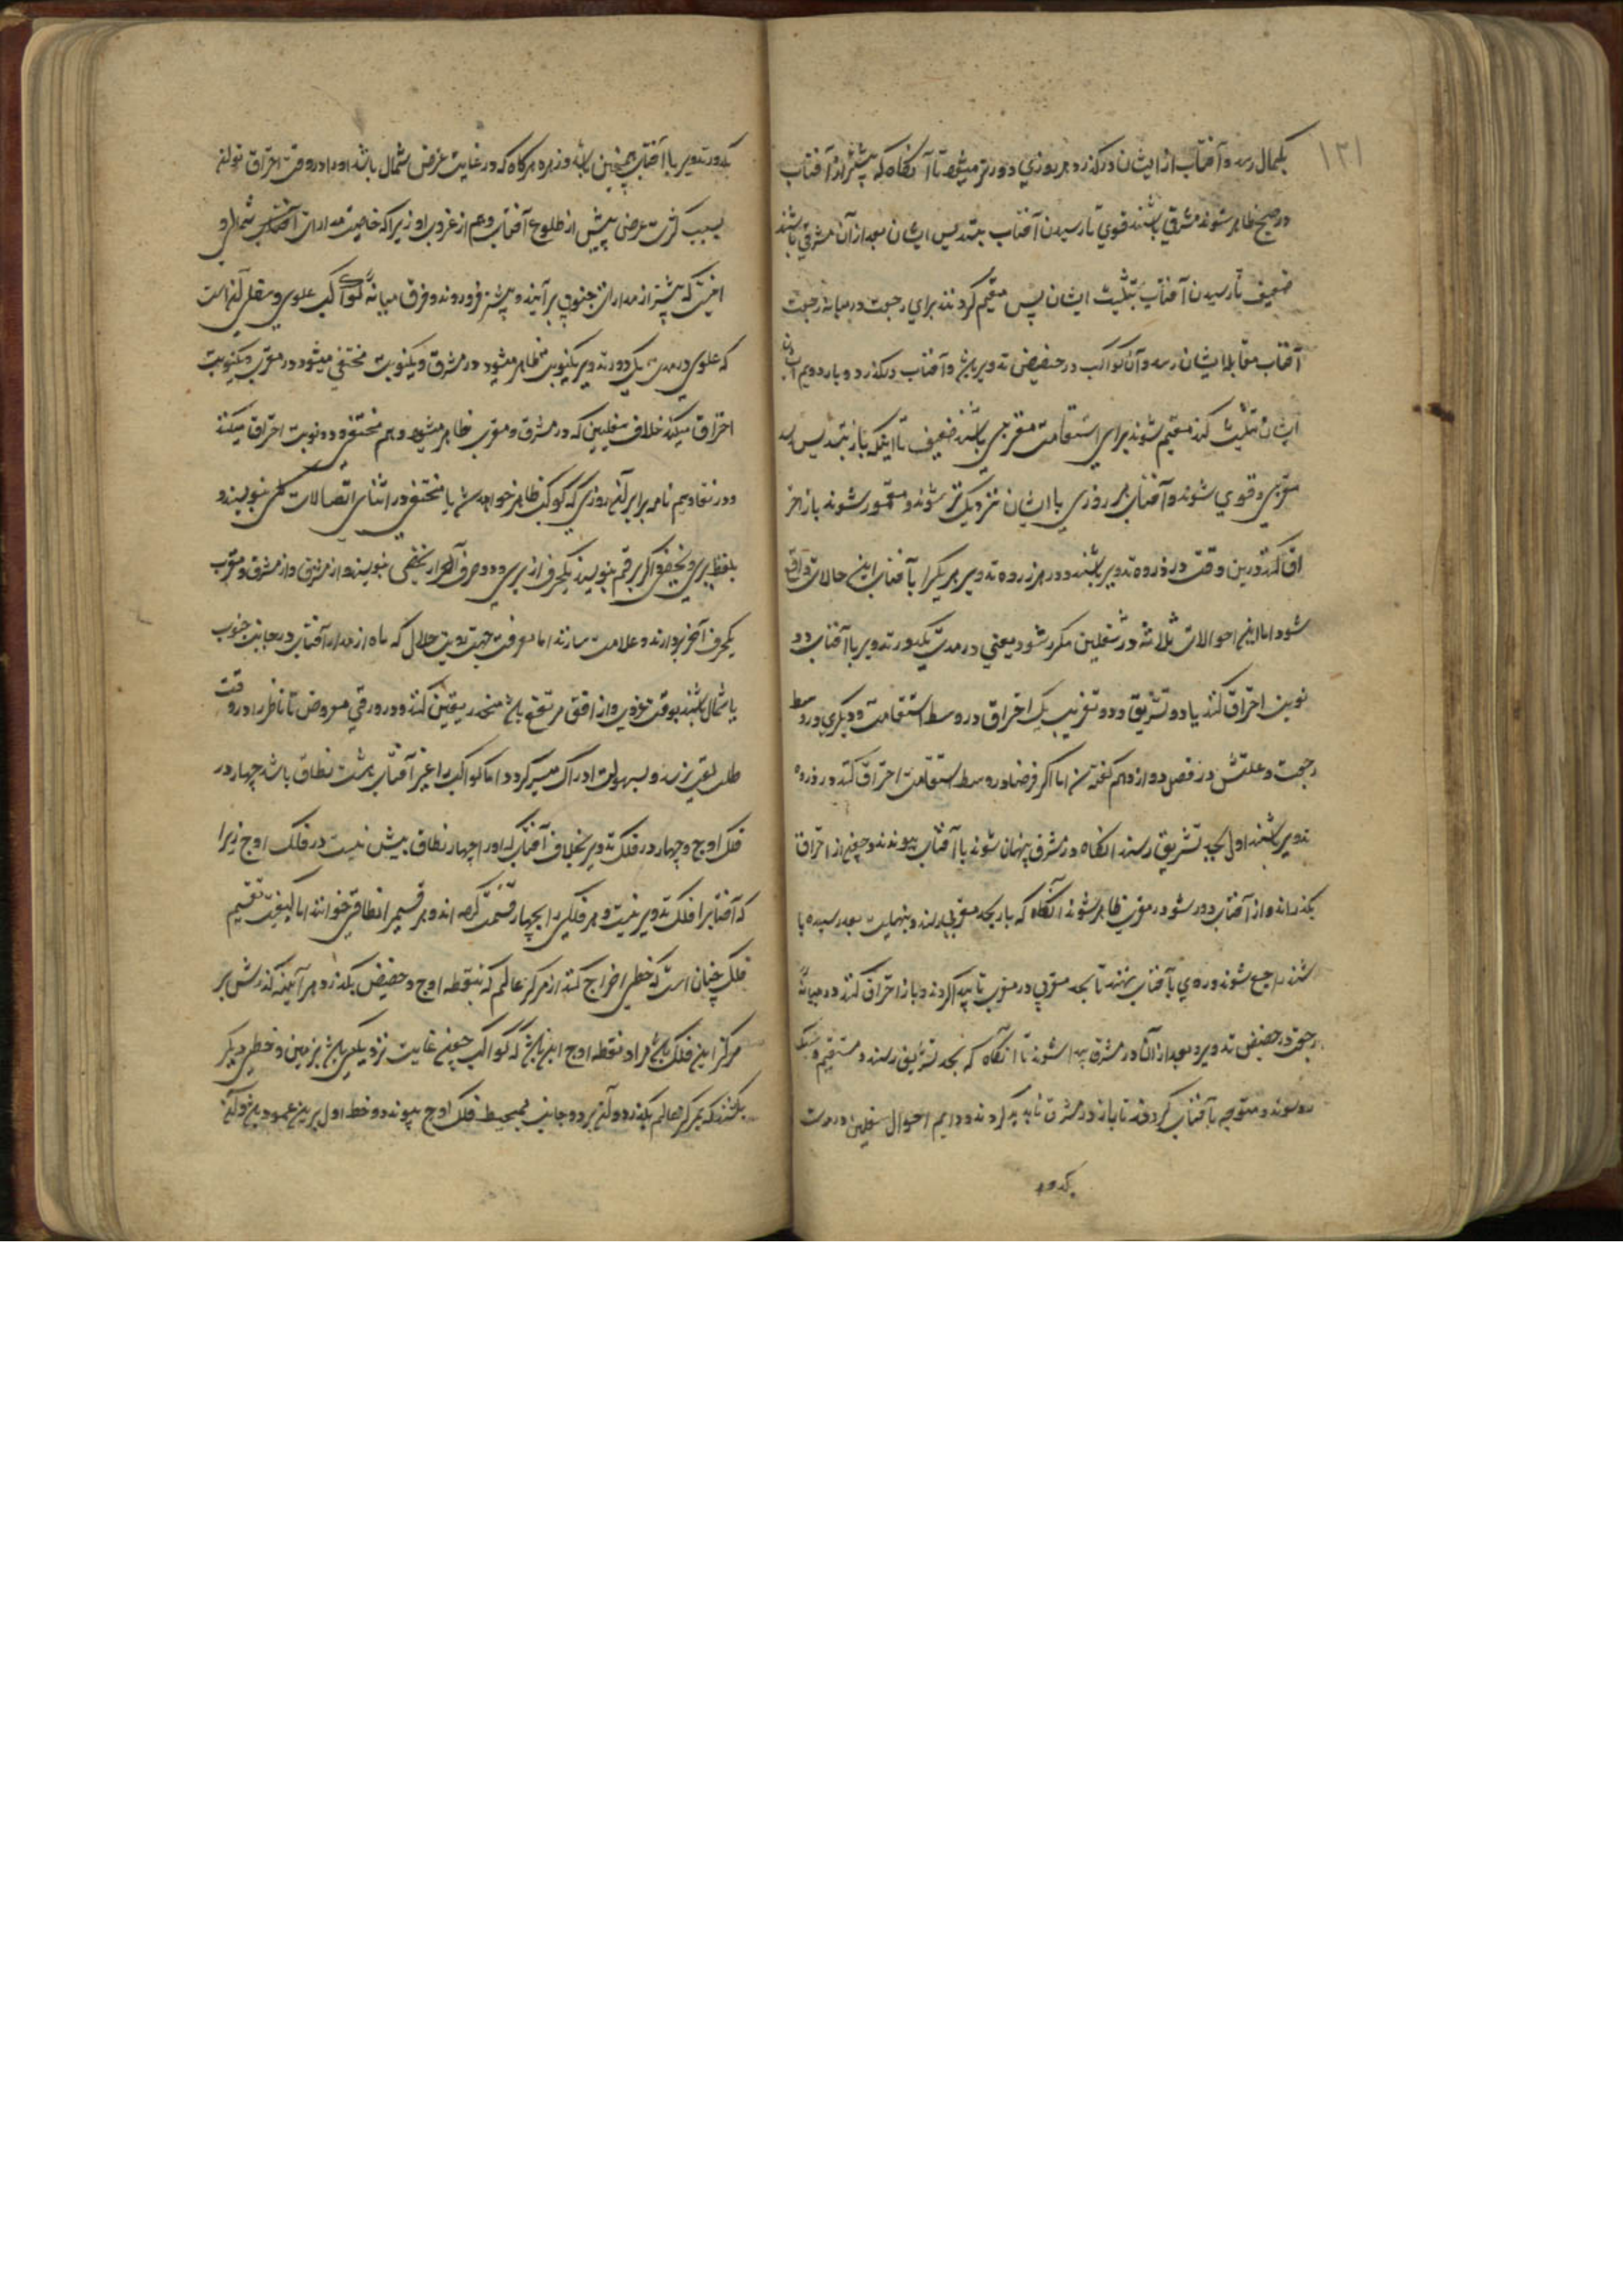 ۱۳۱
بکمال رسد و آفتاب از ایشان درکذرد هر روزی دورتر میشود تا آنکاه که پیشتر از آفتاب
در صبح ظاهر شوند مشرقی باشند قوی تا رسیدن آفتاب بتسدیس ایشان بعد از آن مشرقی باشند
ضعیف تا رسیدن آفتاب بتثلیث ایشان پس مقیم کردند برای رجعت در میانه رجعت
آفتاب مقابله ایشان رسد و آن کواکب در حضیض تدویر باشند و آفتاب درکذرد و بار دویم
ایشان تثلیث کند مقیم شوند برای استقامت مغربی باشند ضعیف تا اینکه باز بتسدیس رسد
مغربی و قوی شوند و آفتاب هر روزی با ایشان نزدیک تر شود و مقهور شوند باز احتر
اق کنند و درین وقت در ذروه تدویر باشند و در هر دوره تدویر هر یکرا با آفتاب این حالات واقع
شود اما این احوالات ثلاثه در سفلیین مکرر شود یعنی در مدت یکدور تدویر با آفتاب دو
نوبت احتراق کنند یا دو تشریق و دو تغریب یک احتراق در وسط استقامت و دیکری در وسط
رجعت و علتش در فصل دوازدهم کفته شد اما اکر فرضا در وسط استقامت احتراق کند در ذروه
تدویر باشند اول بحد تشریق رسند آنکاه در مشرق پنهان شوند با آفتاب پیوندند و چون از احتراق
بکذرند و از آفتاب دور شود در مغرب ظاهر شوند آنکاه که بار بحد مغربی رسند و بنهایت بعد رسیده با
شند راجع شوند و روی بآفتاب نهند تا بحد مغربی در مغرب ناپید کردند و باز احتراق کنند در میانه
رجعت در حضیض تدویر و بعد از آن در مشرق پیدا شوند تا آنکاه که بحد تشریق رسند و مستقیم
رو شوند و متوجه بآفتاب کردند تا باز در مشرق ناپدید کردند و دایم احوال سفلین در مدت
یکدور
یکدور تدویر با آفتاب همچنین باشد و زهره هرکاه که در غایت عرض شمال باشد او را در وقت احتراق توان
بسبب کثرت عرض پیش از طلوع آفتاب و هم از غروب او زیرا که خاصیت مدارات آفتاب شمالی و
اینست که پیشتر از مدارات جنوبی برآیند و پیشتر فرو روند و فرق میانه کواکب علوی و سفلی آنست
که علوی در مدت یک دور تدویر یکنوبت ظاهر میشود در مشرق و یکنوبت مختفی میشود در مغرب و یکنوبت
احتراق میکند خلاف سفلیین که در مشرق و مغرب ظاهر میشود و هم مختفی و دو نوبت احتراق میکند
و در تقاویم نامه برابر آن روزی که کوکب ظاهر خواهد شد یا مختفی در اثنای اتصالات کلی بنویسند و
بلفظ یری و یخفی و اکر برقم بنویسند یکحرف از یری و دو حرف از یخفی بنویسند و از مشرق و از مغرب
یکحرف آخر بردارند و علامت سازند اما معرفت جهت رویت هلال که ماه از مدار آفتاب در جانب جنوب
یا شمال باشد بوقت غروب و از افق مرتفع باشد منحدر یقین کند و در ورقی معروض تا ناظر را در وقت
طلب بسهولت ادراک میسر کردد اما کواکب را غیر آفتاب هشت نطاق باشد چهار در
فلک اوج و چهار در فلک تدویر بخلاف آفتاب که او را چهار نطاق بیش نیست در فلک اوج زیرا
که آفتاب را فلک تدویر نیست و هر فلکی را بچهار قسمت کرده اند و هر قسم را نطاقی خوانند اما کیفیت تقسیم
فلک چنان است که خطی اخراج کنند از مرکز عالم که بنقطه اوج و حضیض بکذرد و هر آینه کذرش بر
مرکز این فلک باشد مراد نقطه اوج این باشد که کواکب چون غایت نزدیکی باشد بزمین و خطی دیکر
بکشند که بمرکز عالم بکذرد و آن بر دو جانب بمحیط فلک اوج پیوندد و خط اول برین عمود باشد و آن